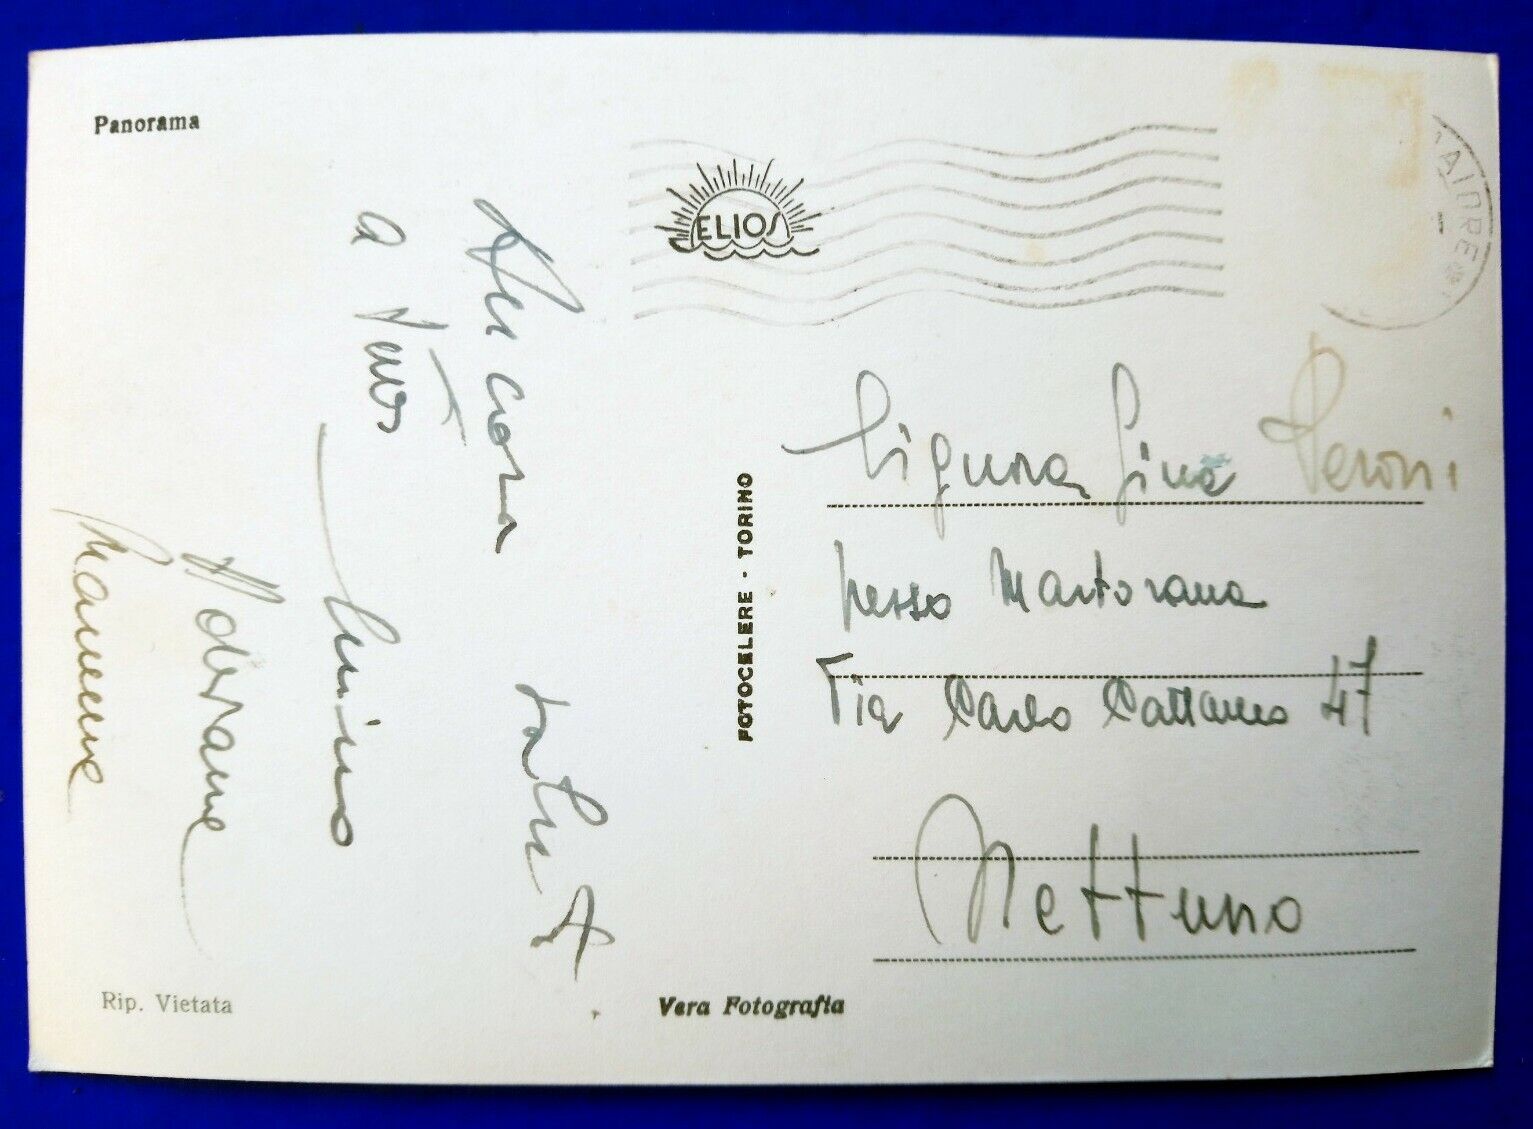 Panorama
ELIOS
AIORE
Ancora saluti
a tutti
Mimino
Adriana
FOTOCELERE - TORINO
Signora Gina Peroni
presso Martorana
Via Carlo Cattaneo 47
Nettuno
Rip. Vietata
Vera Fotografia